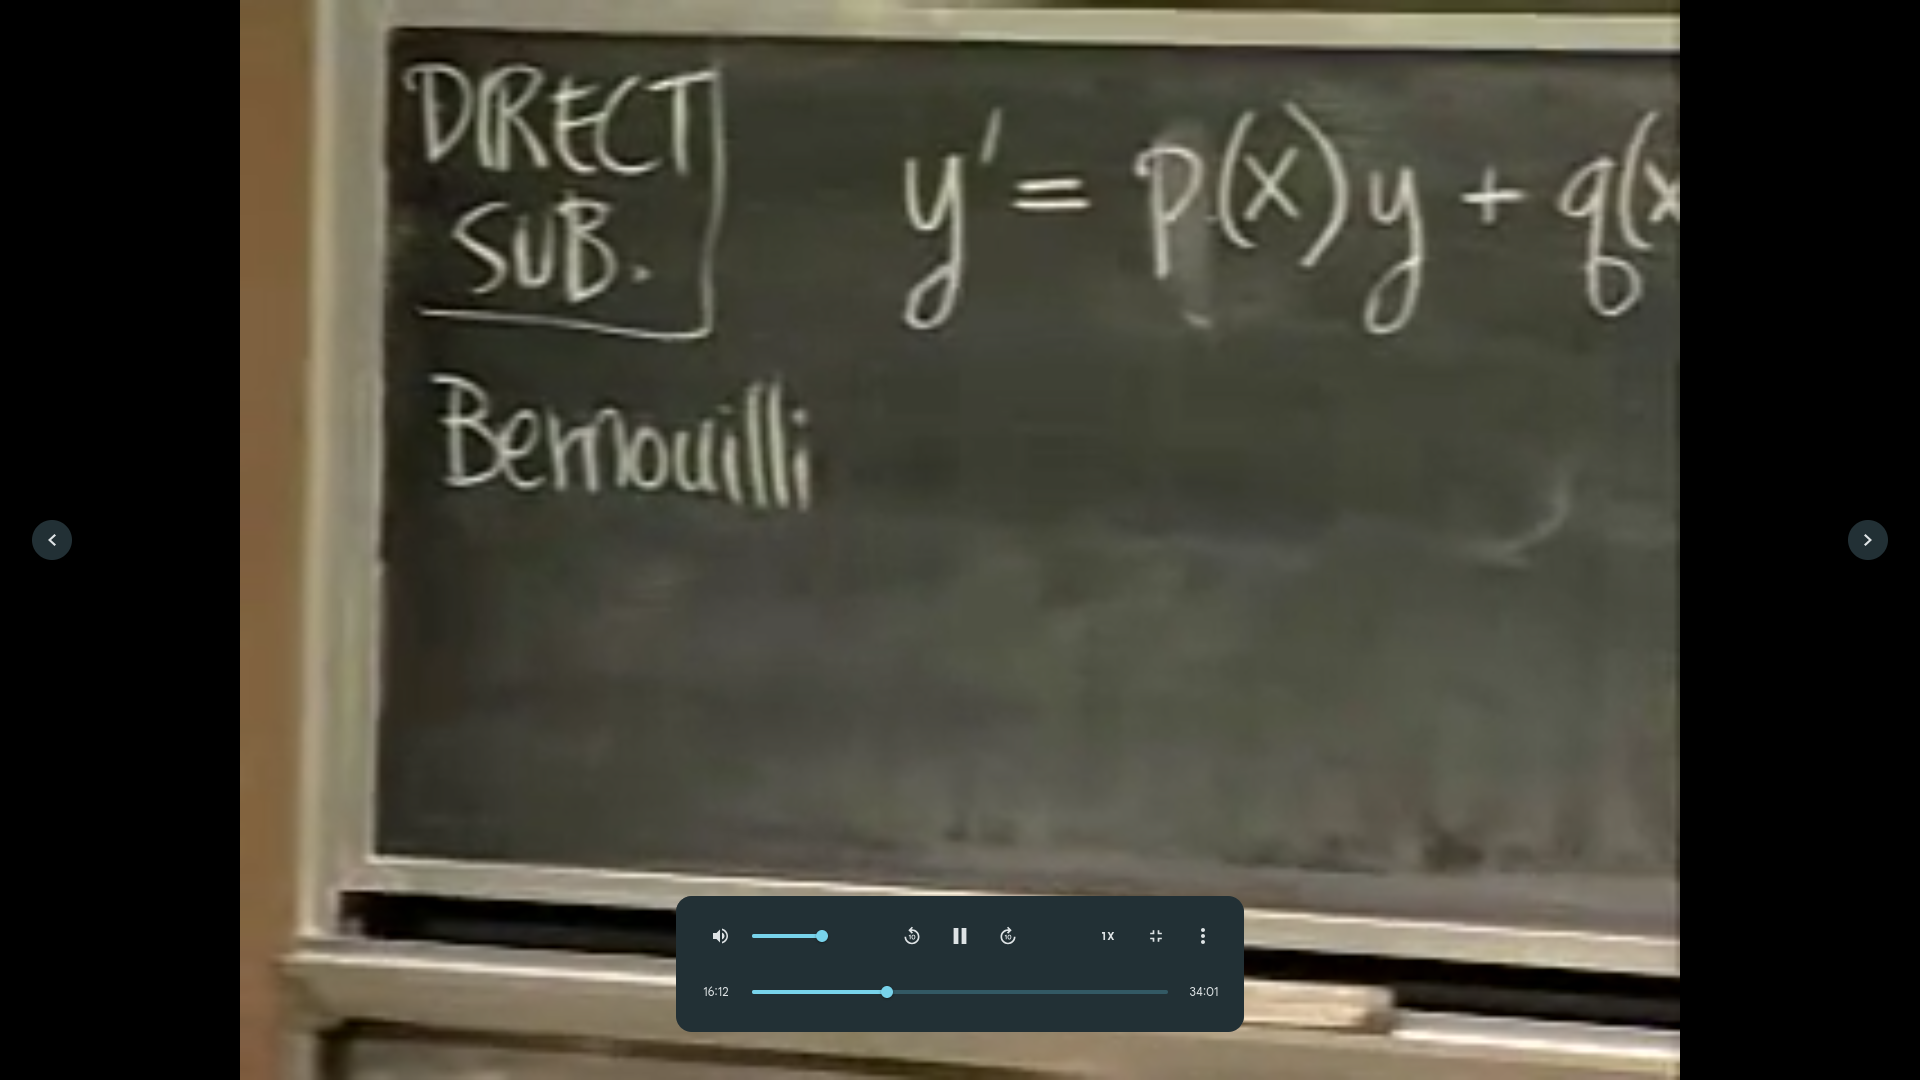 DIRECT
SUB.
y' = p(x)y + q(x
Bernouilli
10
10
1X
16:12
34:01